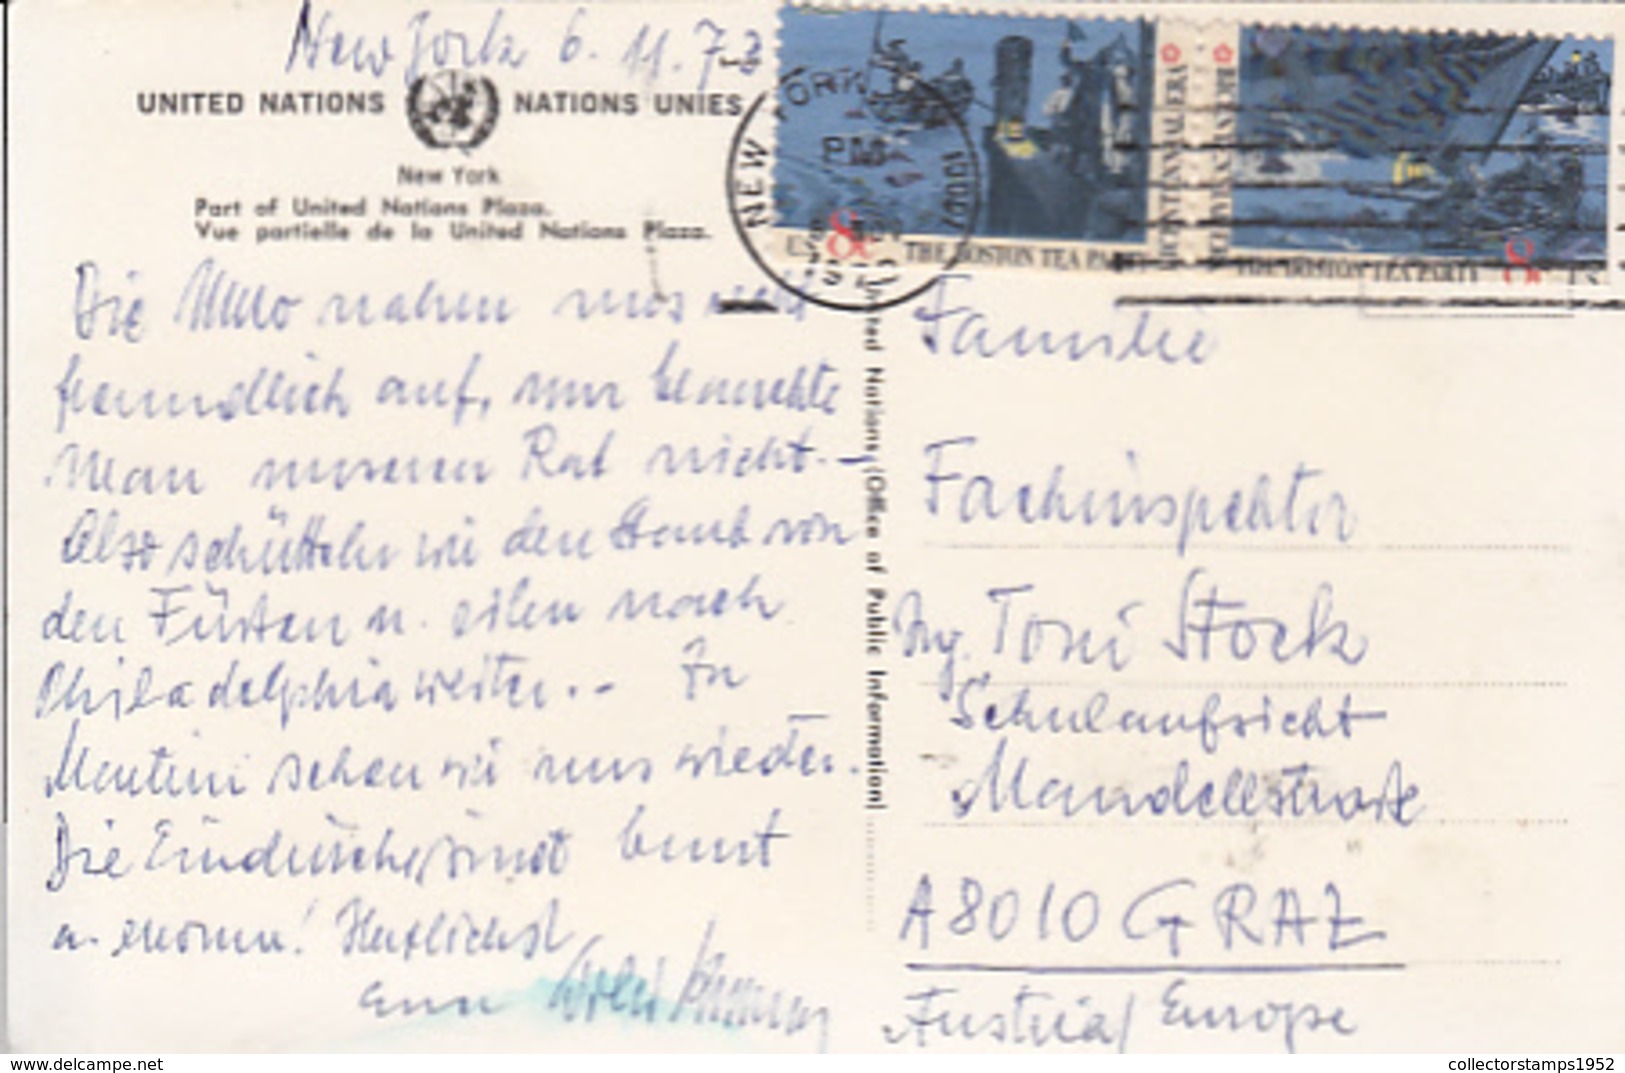 New York 6. 11. 73
UNITED NATIONS NATIONS UNIES
New York
Part of United Nations Plaza.
Vue partielle de la United Nations Plaza.
NEW YORK 10001
PM
8c
THE BOSTON TEA PARTY
BICENTENNIAL ERA
BICENTENNIAL ERA
THE BOSTON TEA PARTY
8c
United Nations (Office of Public Information)
Die Uno nahm uns
freundlich auf, nur brauchte
man unseren Rat nicht.-
Also schütteln wir den Staub von
den Füssen u. eilen nach
Philadelphia weiter. - In
sehen wir uns wieder.
Die Eindrücke sind bunt
u. enorm! Herzlichst
Familie
Fachinspektor
Ing. Toni Stock
Schulaufsicht
Mandellstrasse
A 8010 GRAZ
Austria/Europe
delcampe.net
collectorstamps1952